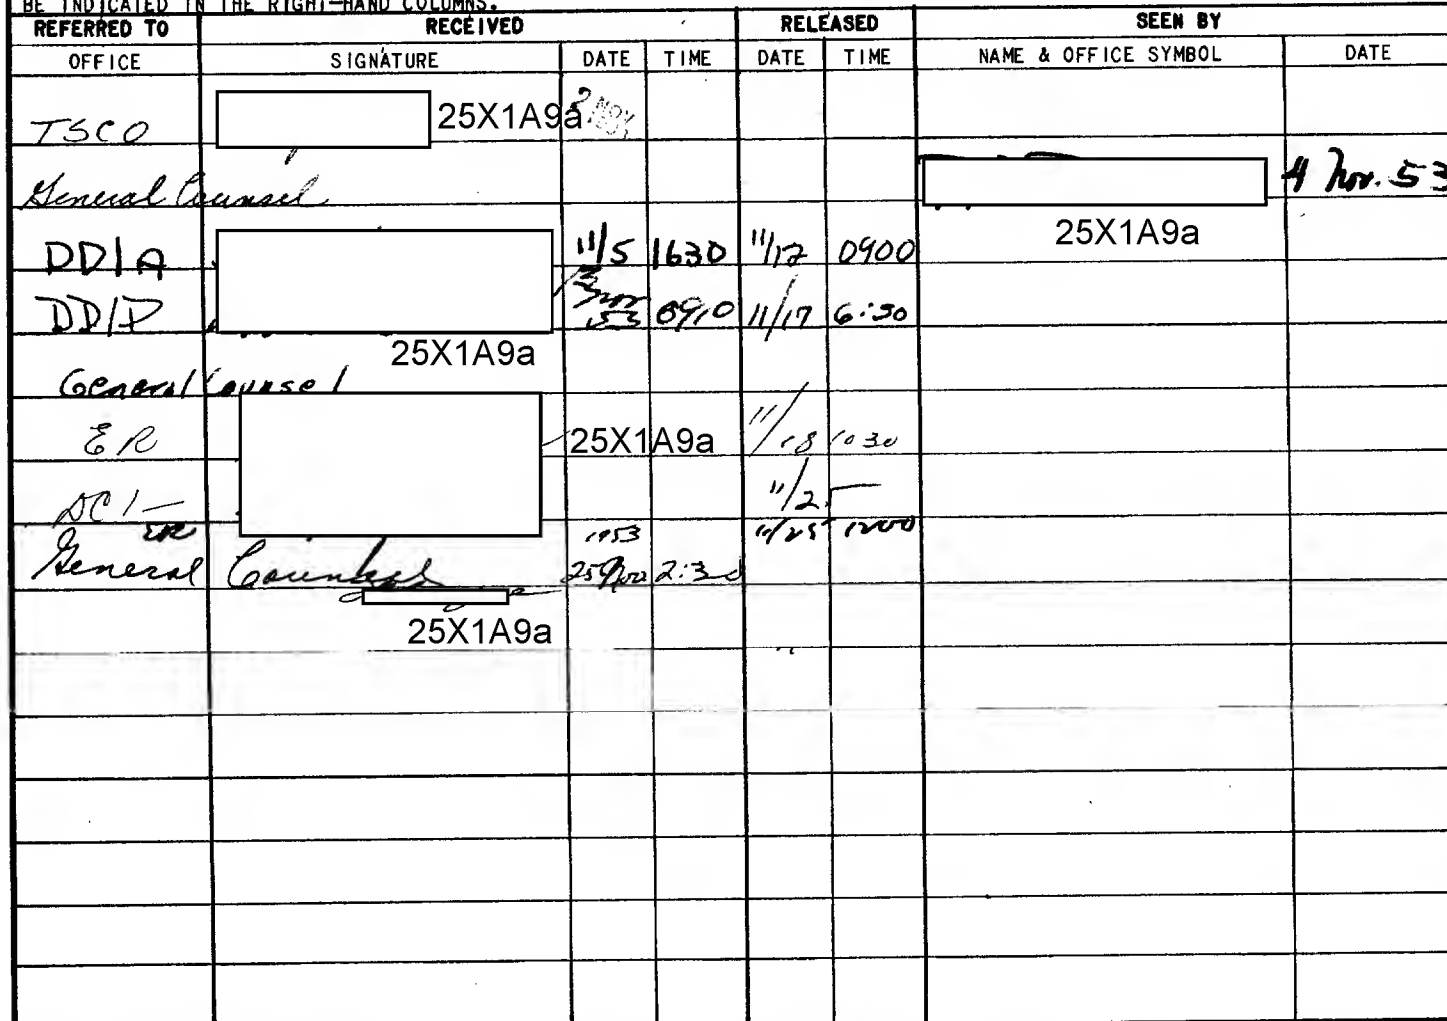 BE INDICATED IN THE RIGHT-HAND COLUMNS.
REFERRED TO RECEIVED RELEASED SEEN BY
OFFICE SIGNATURE DATE TIME DATE TIME NAME & OFFICE SYMBOL DATE
TSCO 25X1A9a 2 NOV
General Counsel 4 Nov. 53
25X1A9a
DD/A 11/5 1630 11/12 0900
DD/P Nov 53 0910 11/17 6:30
25X1A9a
General Counsel
ER 25X1A9a 11/18 1030
DCI— 11/25
ER 1953 11/25 1200
General Counsel 25 Nov 2:30
25X1A9a